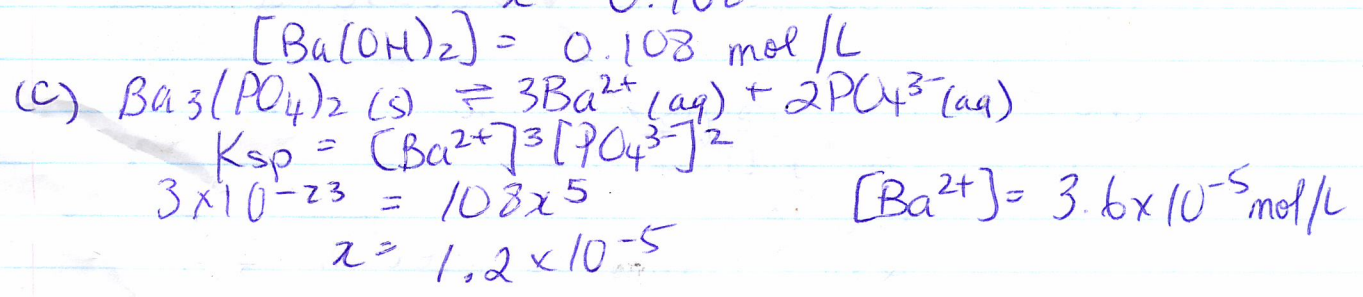 [Ba(OH)2] = 0.108 mol/L
(c) Ba3(PO4)2 (s) ⇌ 3Ba2+ (aq) + 2PO43- (aq)
Ksp = [Ba2+]3[PO43-]2
3x10-23 = 108x5 [Ba2+] = 3.6x10-5 mol/L
x = 1.2x10-5